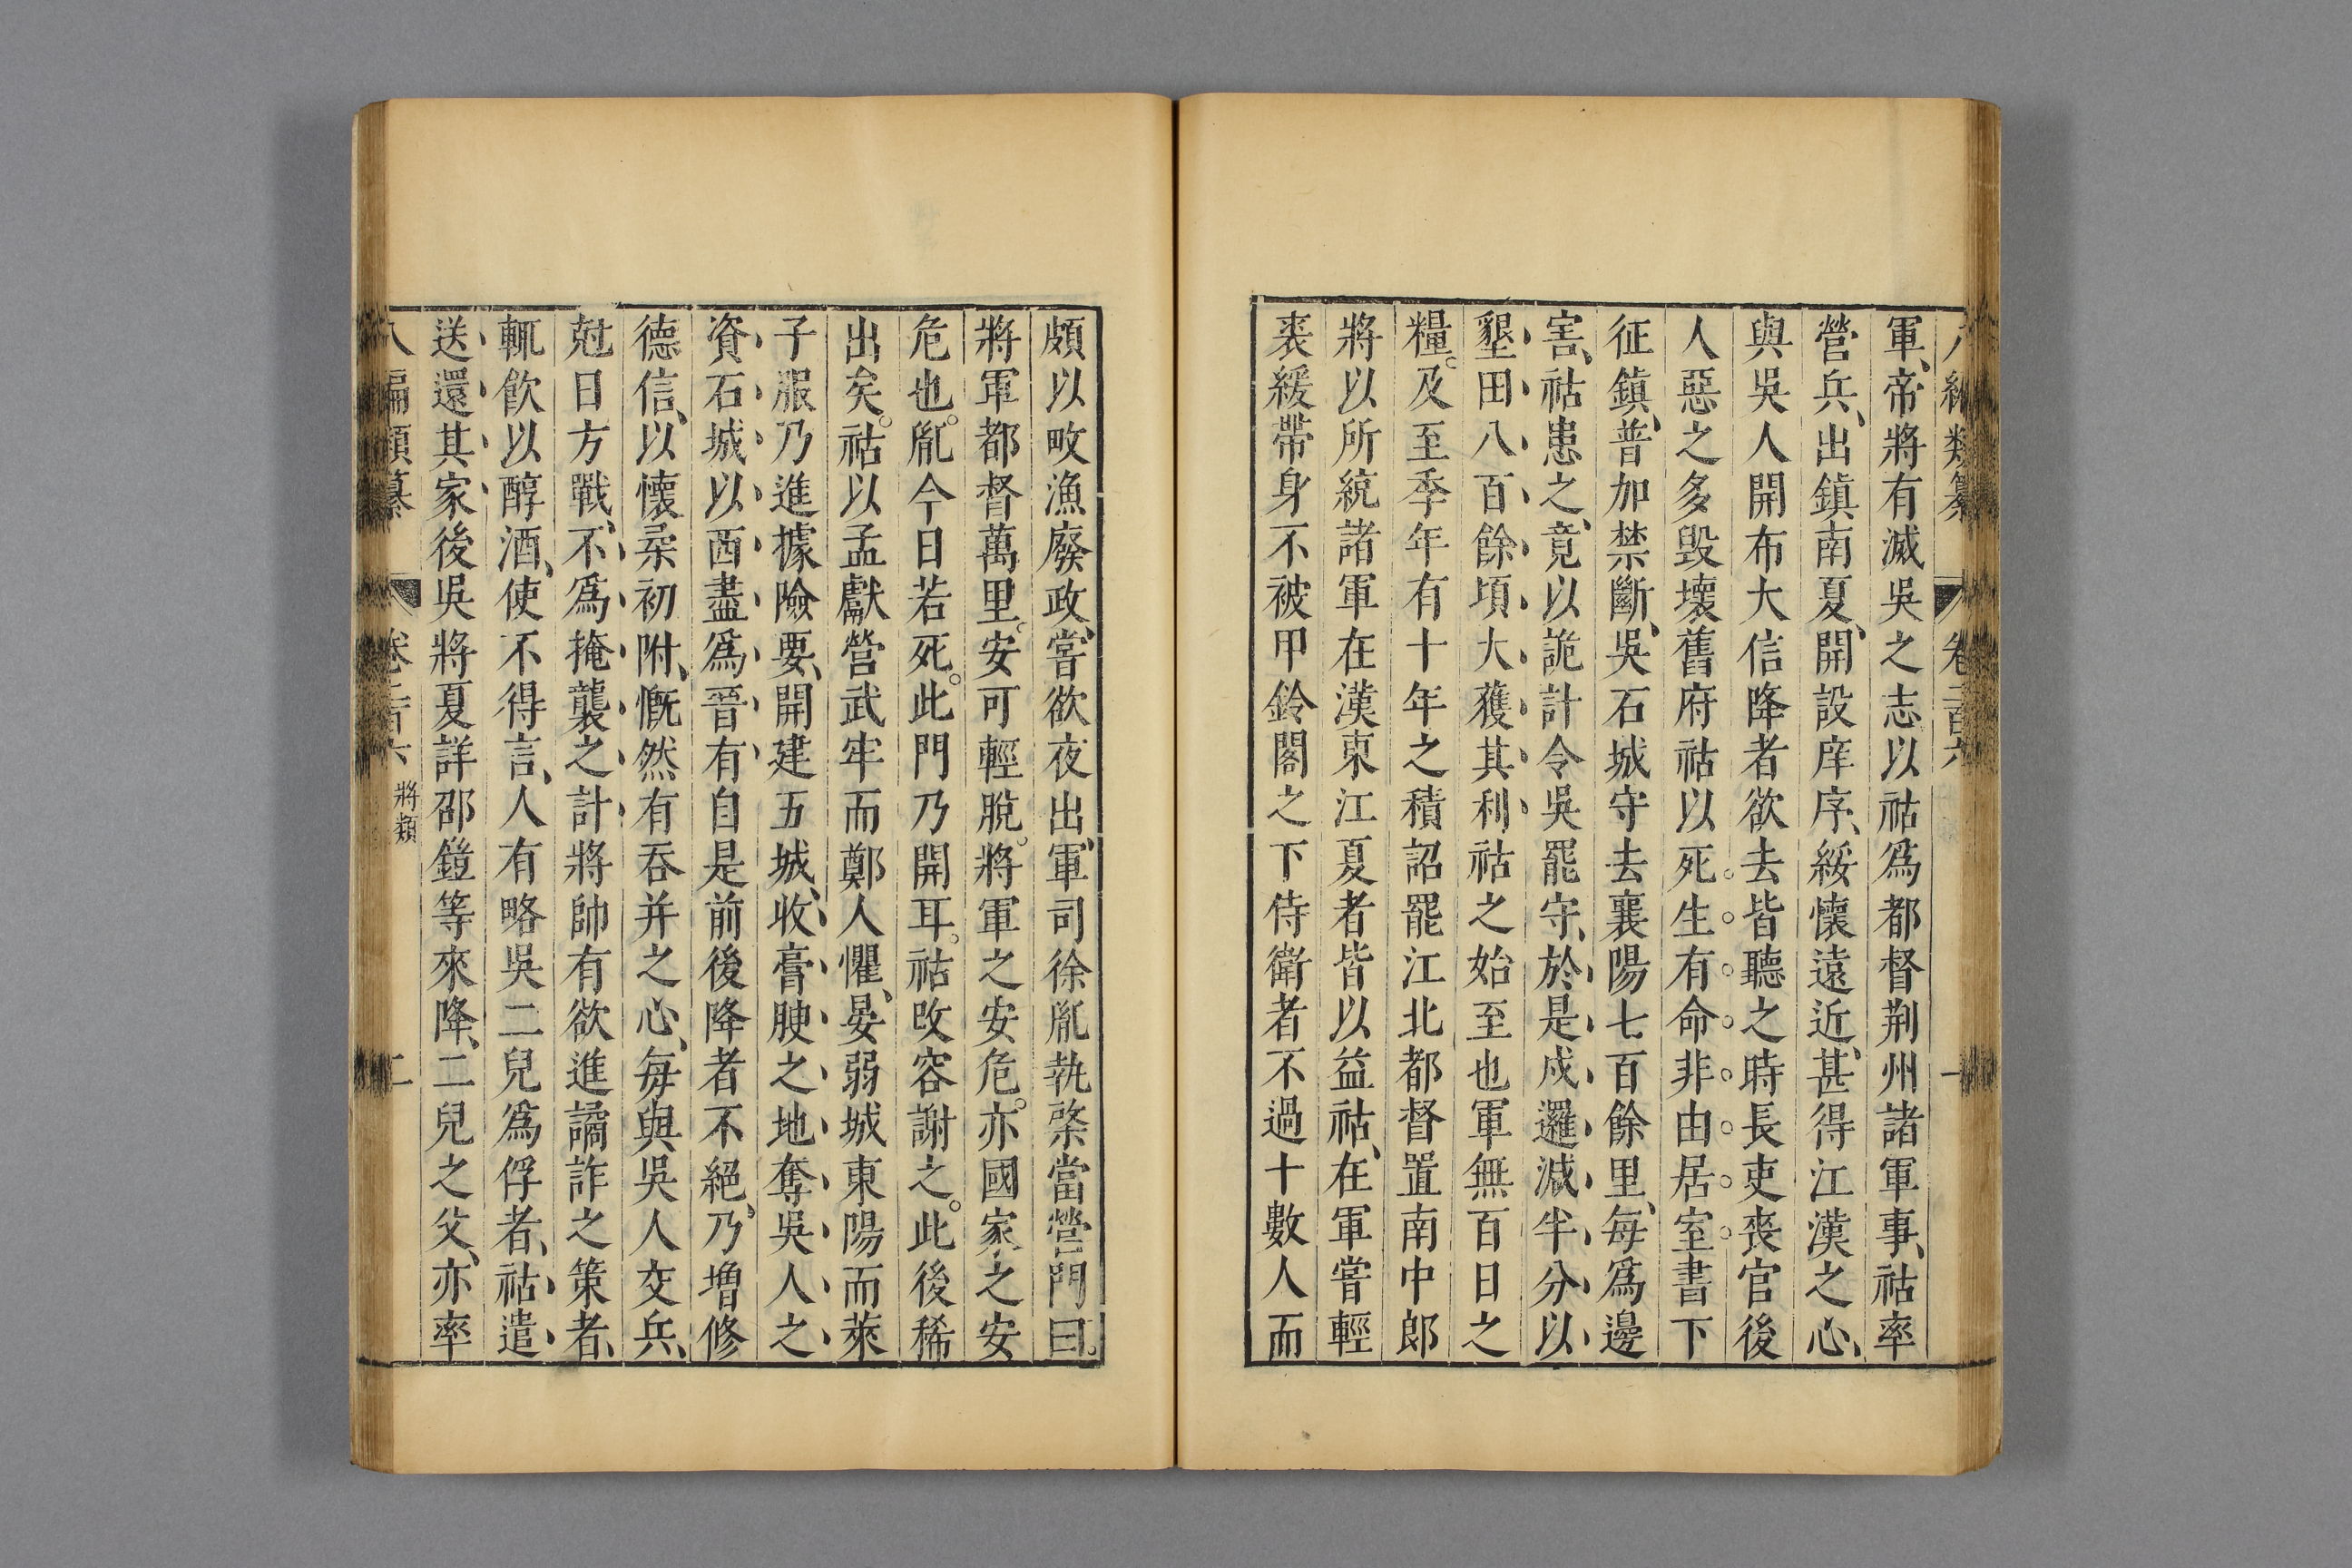 八編類纂 卷二百六 一
軍、帝將有滅吳之志以祜爲都督荆州諸軍事、祜率
營兵、出鎮南夏、開設庠序、綏懷遠近、甚得江漢之心、
與吳人開布大信降者欲去皆聽之時長吏喪官後
人惡之多毀壞舊府祜以死生有命非由居室書下
征鎮、普加禁斷、吳石城守去襄陽七百餘里、每爲邊
害、祜患之、竟以詭計令吳罷守、於是戍邏減半分以
墾田八百餘頃大獲其利祜之始至也軍無百日之
糧。及至季年有十年之積詔罷江北都督置南中郎
將以所統諸軍在漢東江夏者皆以益祜、在軍嘗輕
裘緩帶身不被甲鈴閣之下侍衛者不過十數人而
頗以畋漁廢政、嘗欲夜出、軍司徐胤執棨當營門曰。
將軍都督萬里。安可輕脫。將軍之安危。亦國家之安
危也。胤今日若死。此門乃開耳。祜改容謝之。此後稀
出矣。祜以孟獻營武牢而鄭人懼、晏弱城東陽而萊
子服乃進據險要、開建五城、收膏腴之地奪吳人之
資石城以西盡爲晉有自是前後降者不絕、乃增修
德信、以懷柔初附、慨然有吞并之心、每與吳人交兵、
尅日方戰、不爲掩襲之計將帥有欲進譎詐之策者、
輒飲以醇酒、使不得言、人有略吳二兒爲俘者、祜遣
送還其家後吳將夏詳邵鎧等來降、二兒之父、亦率
八編類纂 卷二百六 將類 二